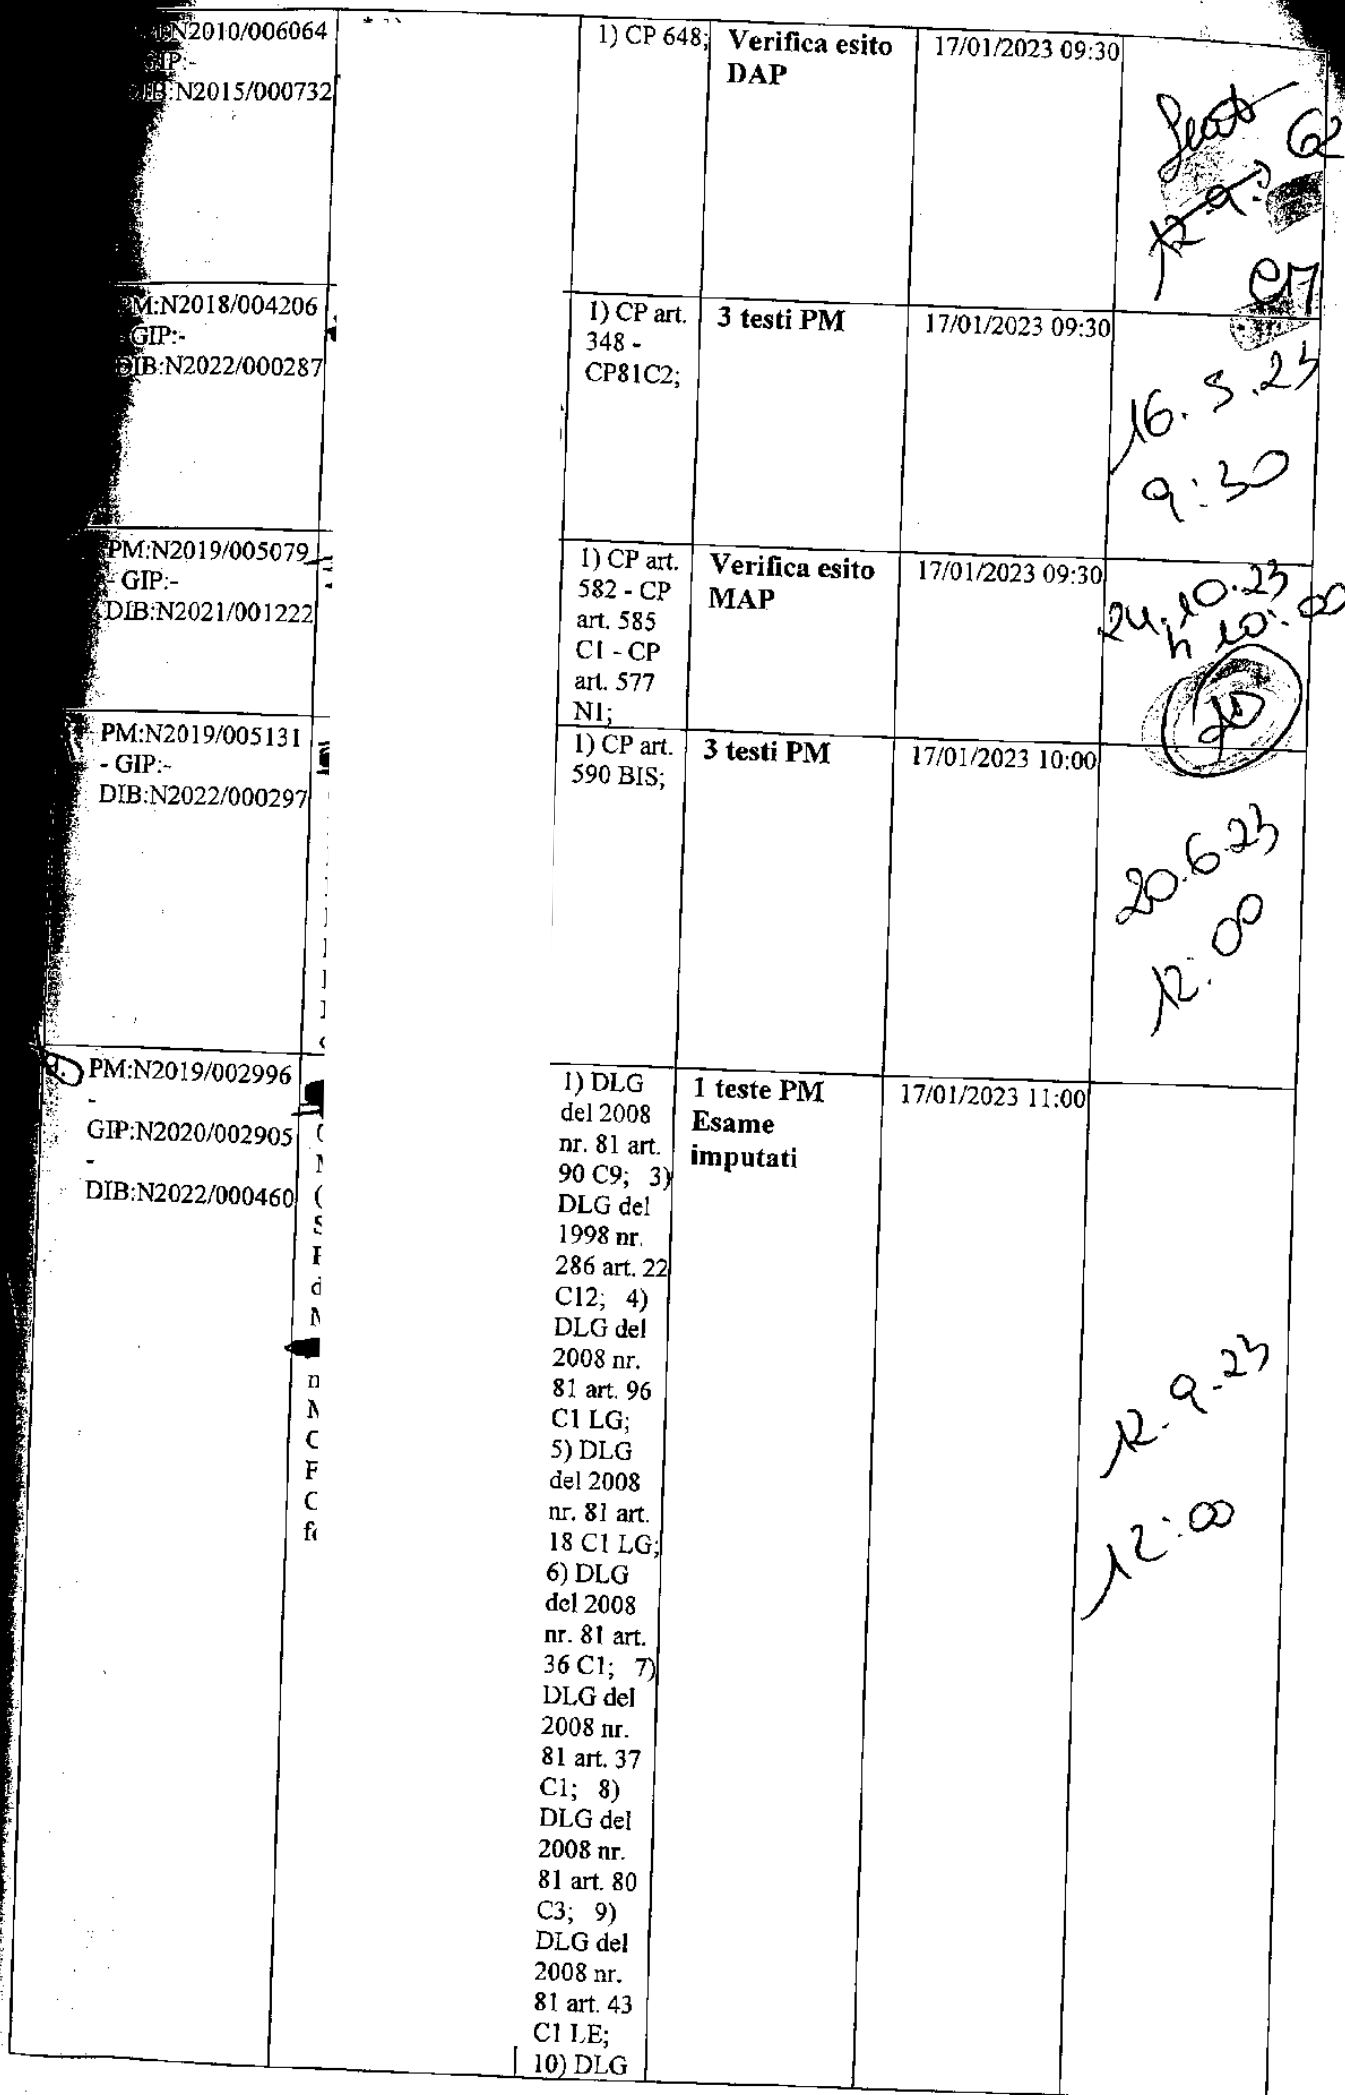 N2010/006064
GIP:-
DIB:N2015/000732
1) CP 648;
Verifica esito
DAP
17/01/2023 09:30
PM:N2018/004206
GIP:-
DIB:N2022/000287
1) CP art.
348 -
CP81C2;
3 testi PM
17/01/2023 09:30
16. 5.23
9:30
PM:N2019/005079
- GIP:-
DIB:N2021/001222
1) CP art.
582 - CP
art. 585
C1 - CP
art. 577
N1;
Verifica esito
MAP
17/01/2023 09:30
24.10.23
h 10:00
PM:N2019/005131
- GIP:-
DIB:N2022/000297
1) CP art.
590 BIS;
3 testi PM
17/01/2023 10:00
20.6.23
12:00
PM:N2019/002996
-
GIP:N2020/002905
-
DIB:N2022/000460
1) DLG
del 2008
nr. 81 art.
90 C9; 3)
DLG del
1998 nr.
286 art. 22
C12; 4)
DLG del
2008 nr.
81 art. 96
C1 LG;
5) DLG
del 2008
nr. 81 art.
18 C1 LG;
6) DLG
del 2008
nr. 81 art.
36 C1; 7)
DLG del
2008 nr.
81 art. 37
C1; 8)
DLG del
2008 nr.
81 art. 80
C3; 9)
DLG del
2008 nr.
81 art. 43
C1 LE;
10) DLG
1 teste PM
Esame
imputati
17/01/2023 11:00
12.9.23
12:00